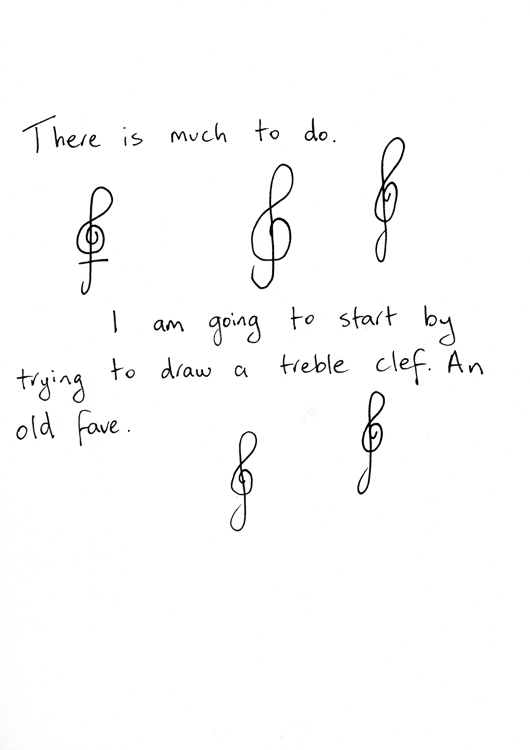 There is much to do.
I am going to start by
trying to draw a treble clef. An
old fave.